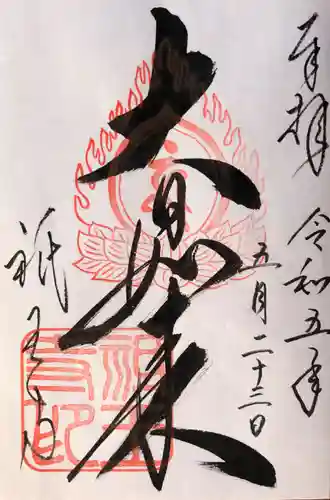 奉拝
令和五年
五月二十三日
大日如来
祇王寺